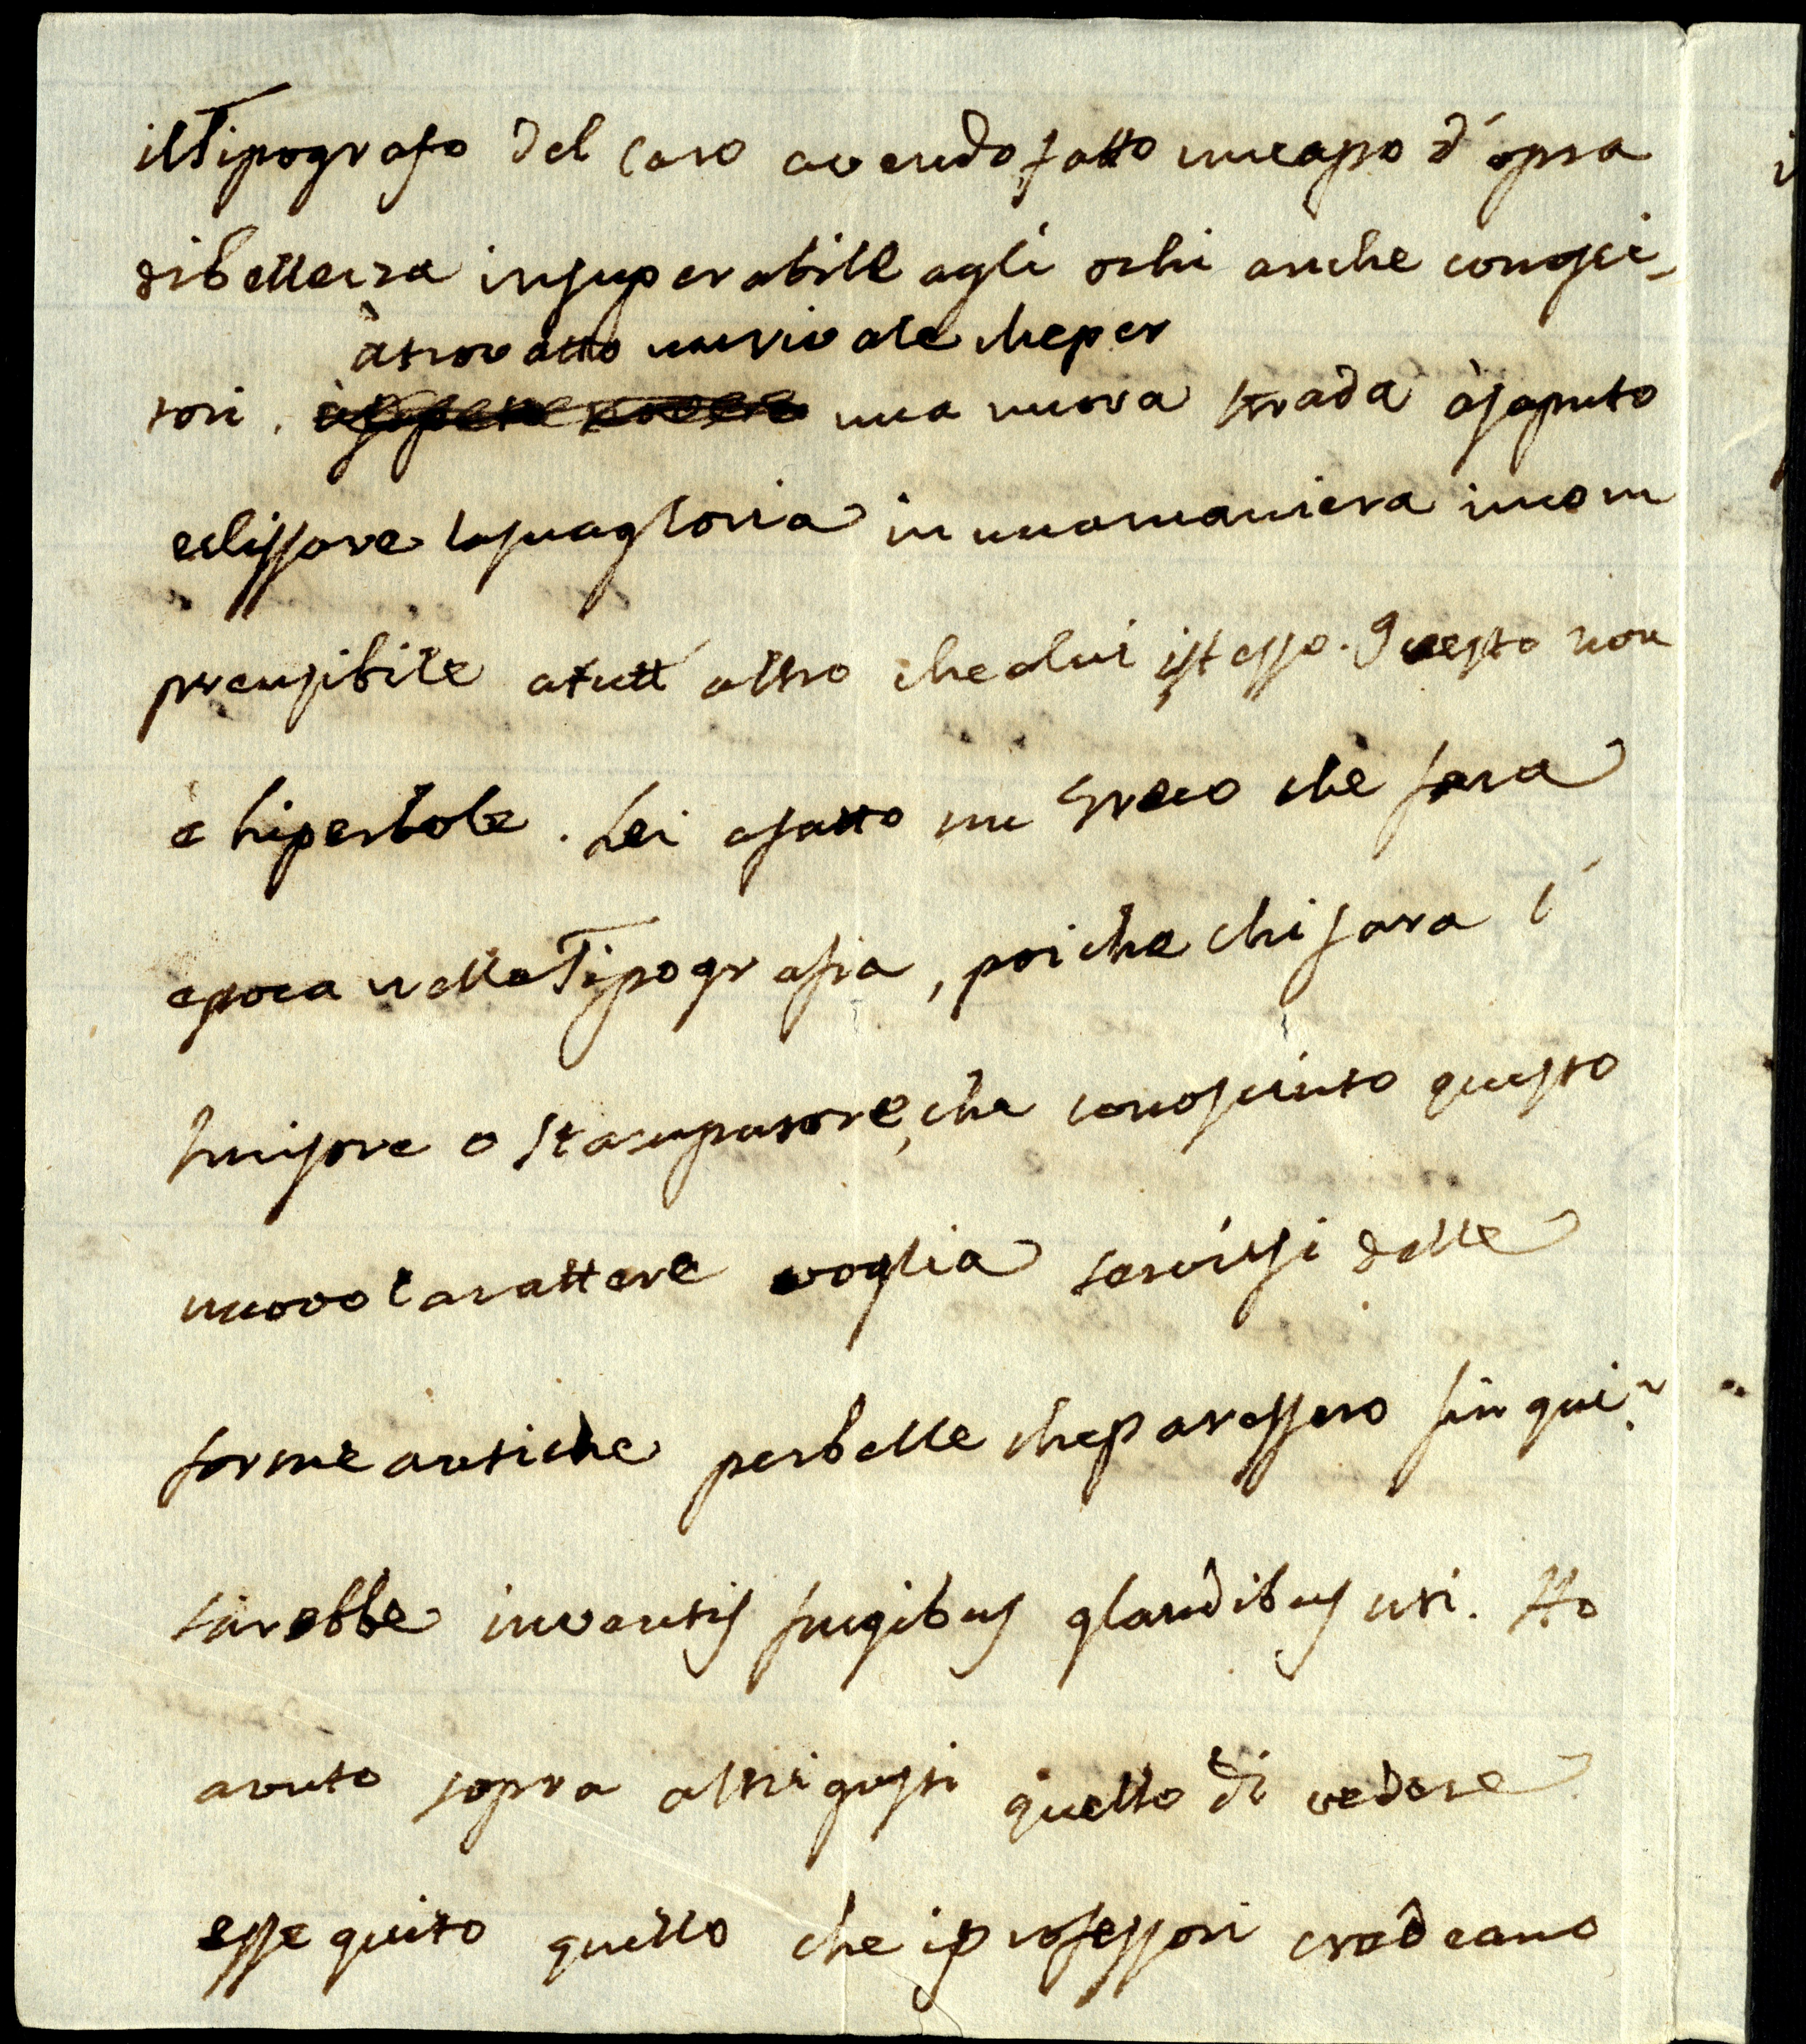 il Tipografo del Caro avendo fatto un capo d'opra
di bellezza insuperabile agli ochi anche conosci-
à trovatto un rivale che per
tori. una nuova strada à saputo
eclissare la sua gloria in una maniera incom
prensibile a tutt altro che a lui istesso. Questo non
è hiperbole. Lei a fatto un Greco che fara
epoca nella Tipografia, poi che chi sara l'
Incisore o Stampatore, che conosciuto questo
nuovo Carattere voglia servirsi delle
forme antiche per belle che paressero fin qui?
sarebbe inventis frugibus glandibus uti. Ho
avuto sopra altri gusti quello di vedere
essequito quello che i professori credeano